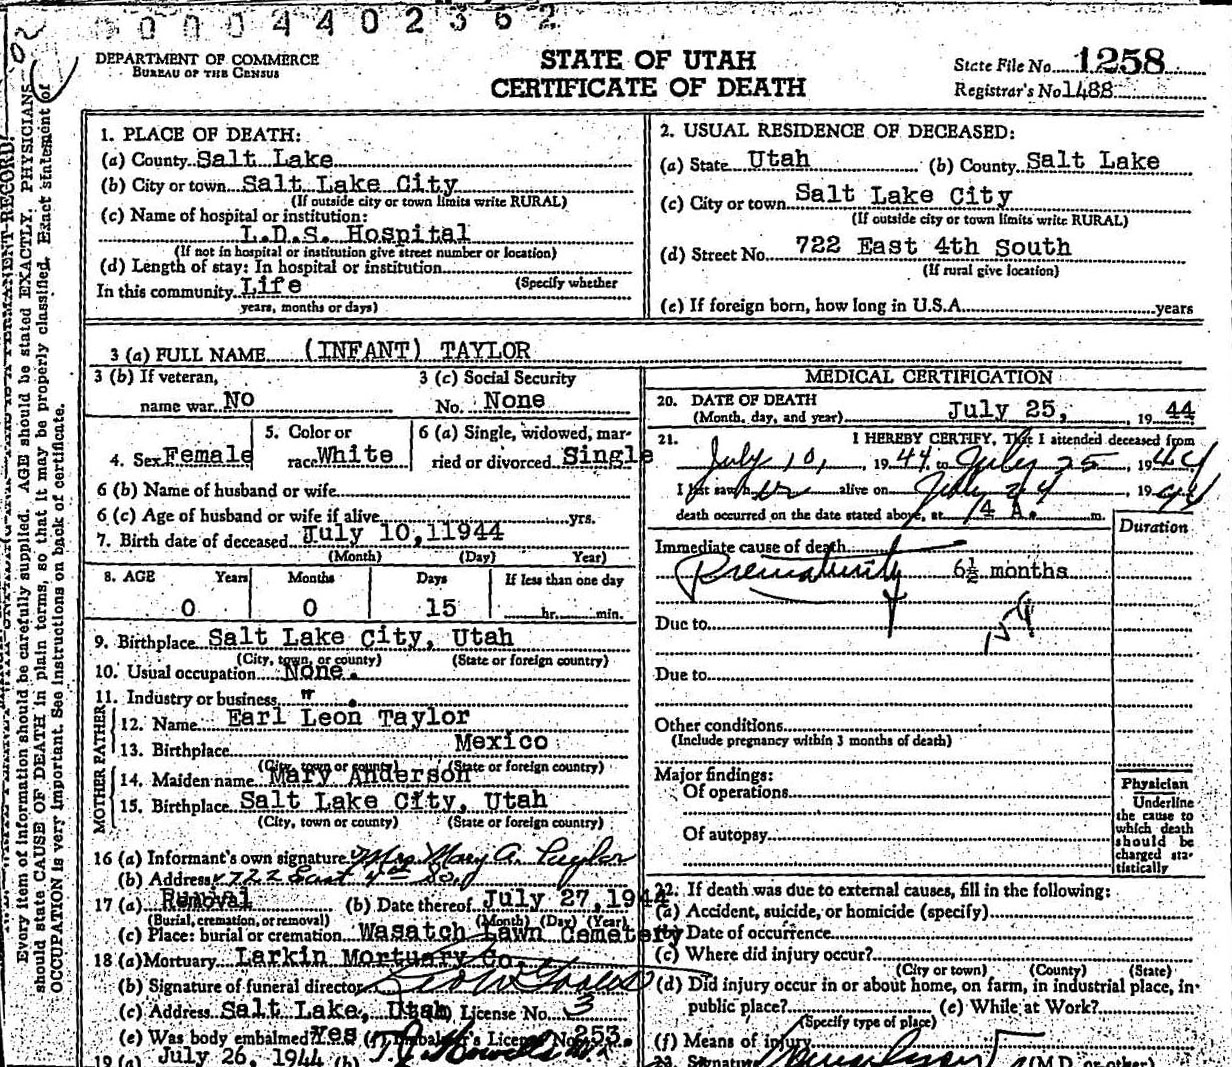 0 0 0 4 4 0 2 3 6 2
DEPARTMENT OF COMMERCE
BUREAU OF THE CENSUS
STATE OF UTAH
CERTIFICATE OF DEATH
State File No. 1258
Registrar's No 1488
1. PLACE OF DEATH:
(a) County Salt Lake
(b) City or town Salt Lake City
(If outside city or town limits write RURAL)
(c) Name of hospital or institution:
L.D.S. Hospital
(If not in hospital or institution give street number or location)
(d) Length of stay: In hospital or institution
(Specify whether
In this community Life
years, months or days)
2. USUAL RESIDENCE OF DECEASED:
(a) State Utah (b) County Salt Lake
(c) City or town Salt Lake City
(If outside city or town limits write RURAL)
(d) Street No. 722 East 4th South
(If rural give location)
(e) If foreign born, how long in U.S.A. years
3 (a) FULL NAME (INFANT) TAYLOR
3 (b) If veteran, 3 (c) Social Security
name war No No. None
4. Sex Female 5. Color or race White 6 (a) Single, widowed, married or divorced Single
6 (b) Name of husband or wife
6 (c) Age of husband or wife if alive yrs.
7. Birth date of deceased July 10,11944
(Month) (Day) Year)
8. AGE Years Months Days If less than one day
0 0 15 hr. min.
9. Birthplace Salt Lake City, Utah
(City, town, or county) (State or foreign country)
10. Usual occupation None.
11. Industry or business " .
FATHER
12. Name Earl Leon Taylor
13. Birthplace Mexico
(City, town or county) (State or foreign country)
MOTHER
14. Maiden name Mary Anderson
15. Birthplace Salt Lake City, Utah
(City, town or county) (State or foreign country)
16 (a) Informant's own signature Mrs Mary A. Taylor
(b) Address 722 East 4th So.
17 (a) Removal (b) Date thereof July 27, 1944
(Burial, cremation, or removal) (Month) (Day) (Year)
(c) Place: burial or cremation Wasatch Lawn Cemetery
18 (a) Mortuary Larkin Mortuary Co.
(b) Signature of funeral director
(c) Address Salt Lake, Utah License No. 3
(e) Was body embalmed? Yes (f) Embalmer's License No. 253.
19 (a) July 26, 1944 (b)
MEDICAL CERTIFICATION
20. DATE OF DEATH
(Month, day, and year) July 25, , 19 44
21. I HEREBY CERTIFY, That I attended deceased from
July 10, , 1944 to July 25 , 1944
I last saw her alive on July 24 , 1944
death occurred on the date stated above, at 4 A. m.
Duration
Immediate cause of death
Prematurity 6½ months
Due to
Due to
Other conditions
(Include pregnancy within 3 months of death)
Major findings:
Of operations
Of autopsy
Physician
Underline
the cause to
which death
should be
charged sta-
tistically
22. If death was due to external causes, fill in the following:
(a) Accident, suicide, or homicide (specify)
(b) Date of occurrence
(c) Where did injury occur?
(City or town) (County) (State)
(d) Did injury occur in or about home, on farm, in industrial place, in
public place? (e) While at Work?
(Specify type of place)
(f) Means of injury
23. Signature (M.D. or other)
Every item of information should be carefully supplied. AGE should be stated EXACTLY. PHYSICIANS
should state CAUSE OF DEATH in plain terms, so that it may be properly classified. Exact statement of
OCCUPATION is very important. See instructions on back of certificate.